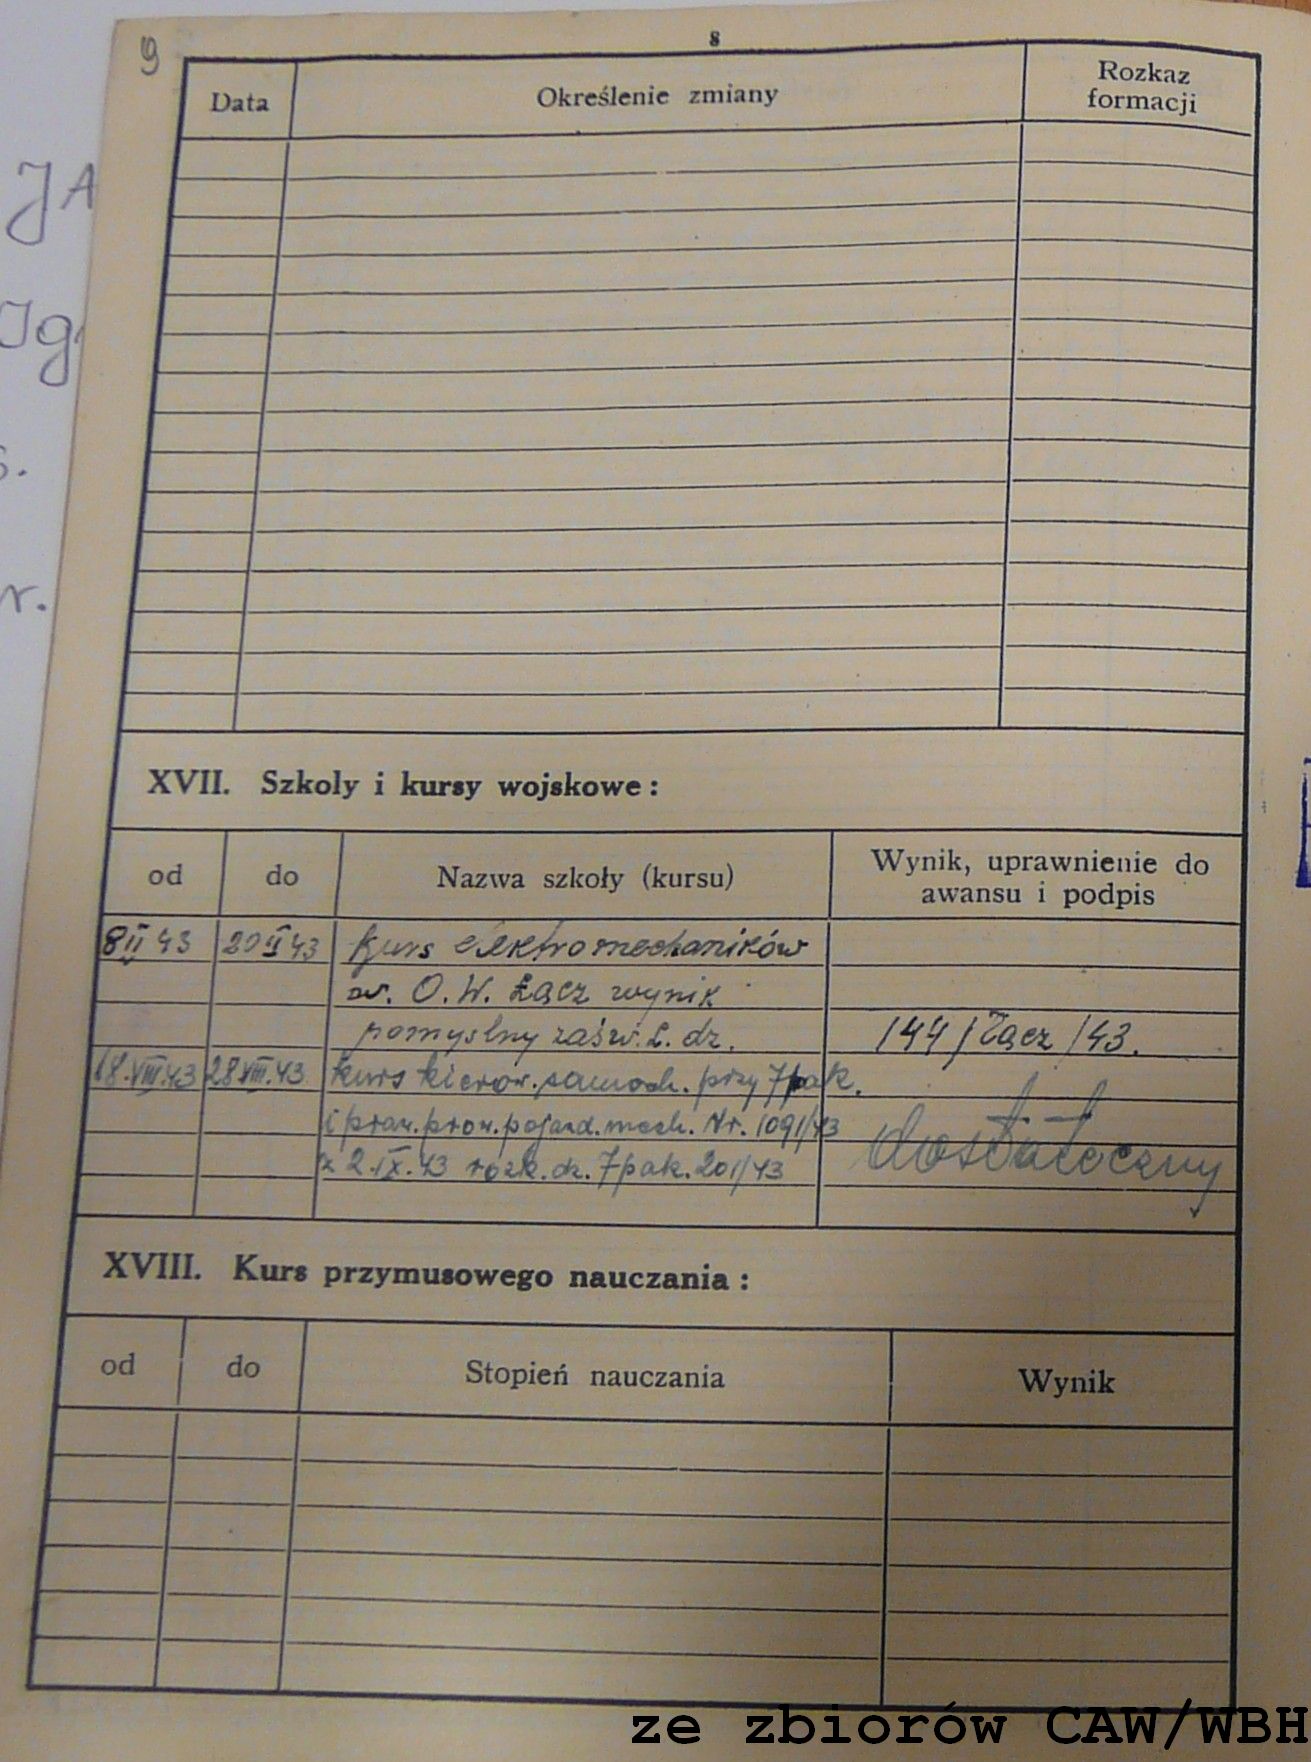 9
8
Data Określenie zmiany Rozkaz formacji
JA
Ig
s.
r.
XVII. Szkoły i kursy wojskowe:
od do Nazwa szkoły (kursu) Wynik, uprawnienie do awansu i podpis
8 II 43 20 II 43 kurs elektromechaników
O. W. Łącz wynik
pomyslny zaśw. L. dz. 144/Łącz/43.
18.VIII.43 28 VIII.43 kurs kierow. samoch. przy 7 pak.
i praw. prow. pojazd. mech. Nr. 1091/43 dostateczny
z 2.IX.43 rozk. dz. 7 pak. 201/43
XVIII. Kurs przymusowego nauczania:
od do Stopień nauczania Wynik
ze zbiorów CAW/WBH